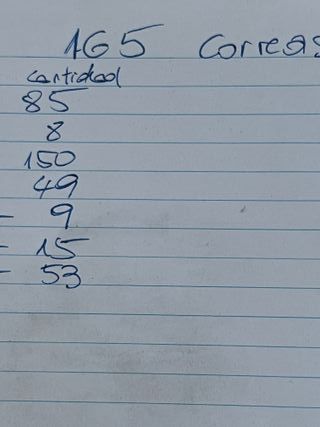 165 Correas
cantidad
85
8
150
49
- 9
- 15
- 53